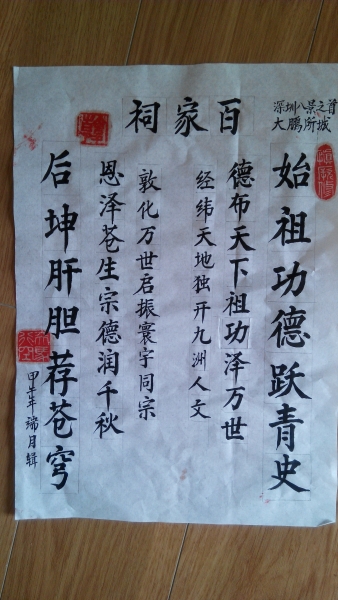 深圳八景之首
大鹏所城
百家祠
始祖功德跃青史
德布天下祖功泽万世
经纬天地独开九洲人文
敦化万世启振寰宇同宗
恩泽苍生宗德润千秋
后坤肝胆荐苍穹
甲午年端月辑